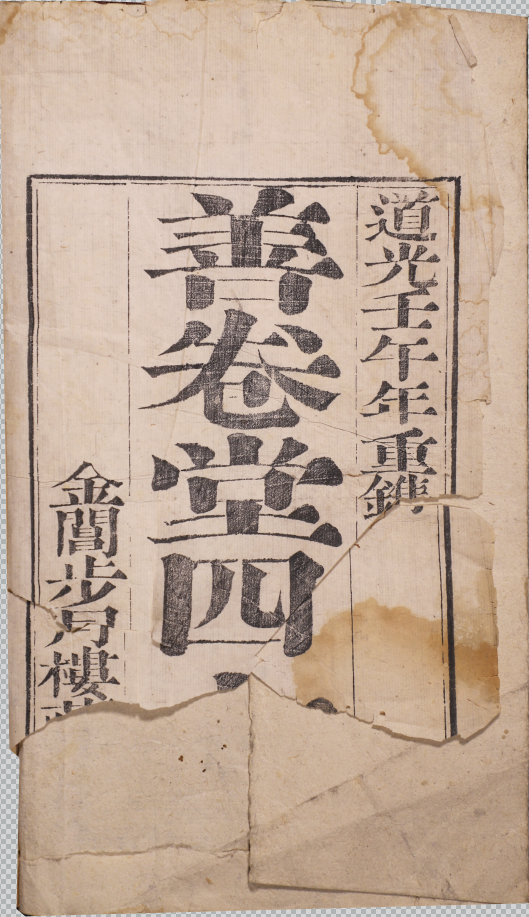 道光壬午年重鐫
善卷堂四
金閶步月樓